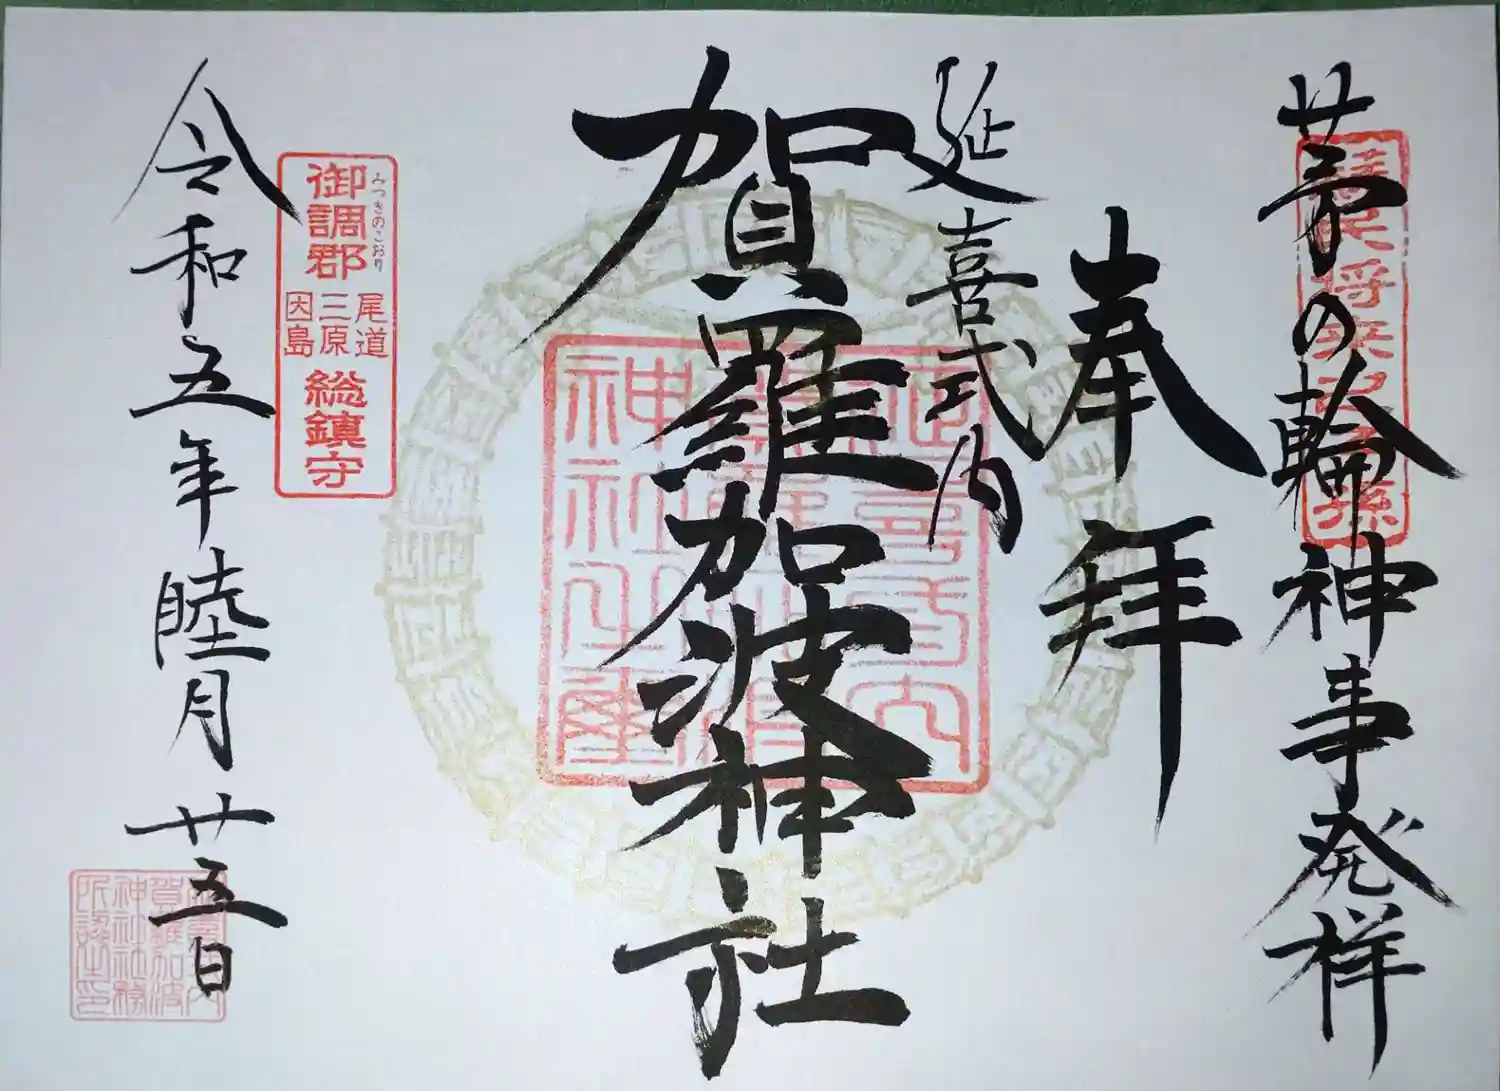 茅の輪神事発祥
蘇民将来子孫
奉拝
延喜式内
賀羅加波神社
延喜式内
神社之璽
御調郡
みつきのこおり
尾道
三原
因島
総鎮守
令和五年陸月廿五日
賀羅加波
神社社務
所認之印